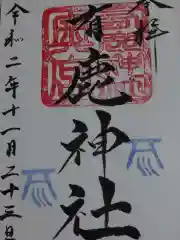 奉拝
有鹿神社
令和二年十一月二十三日